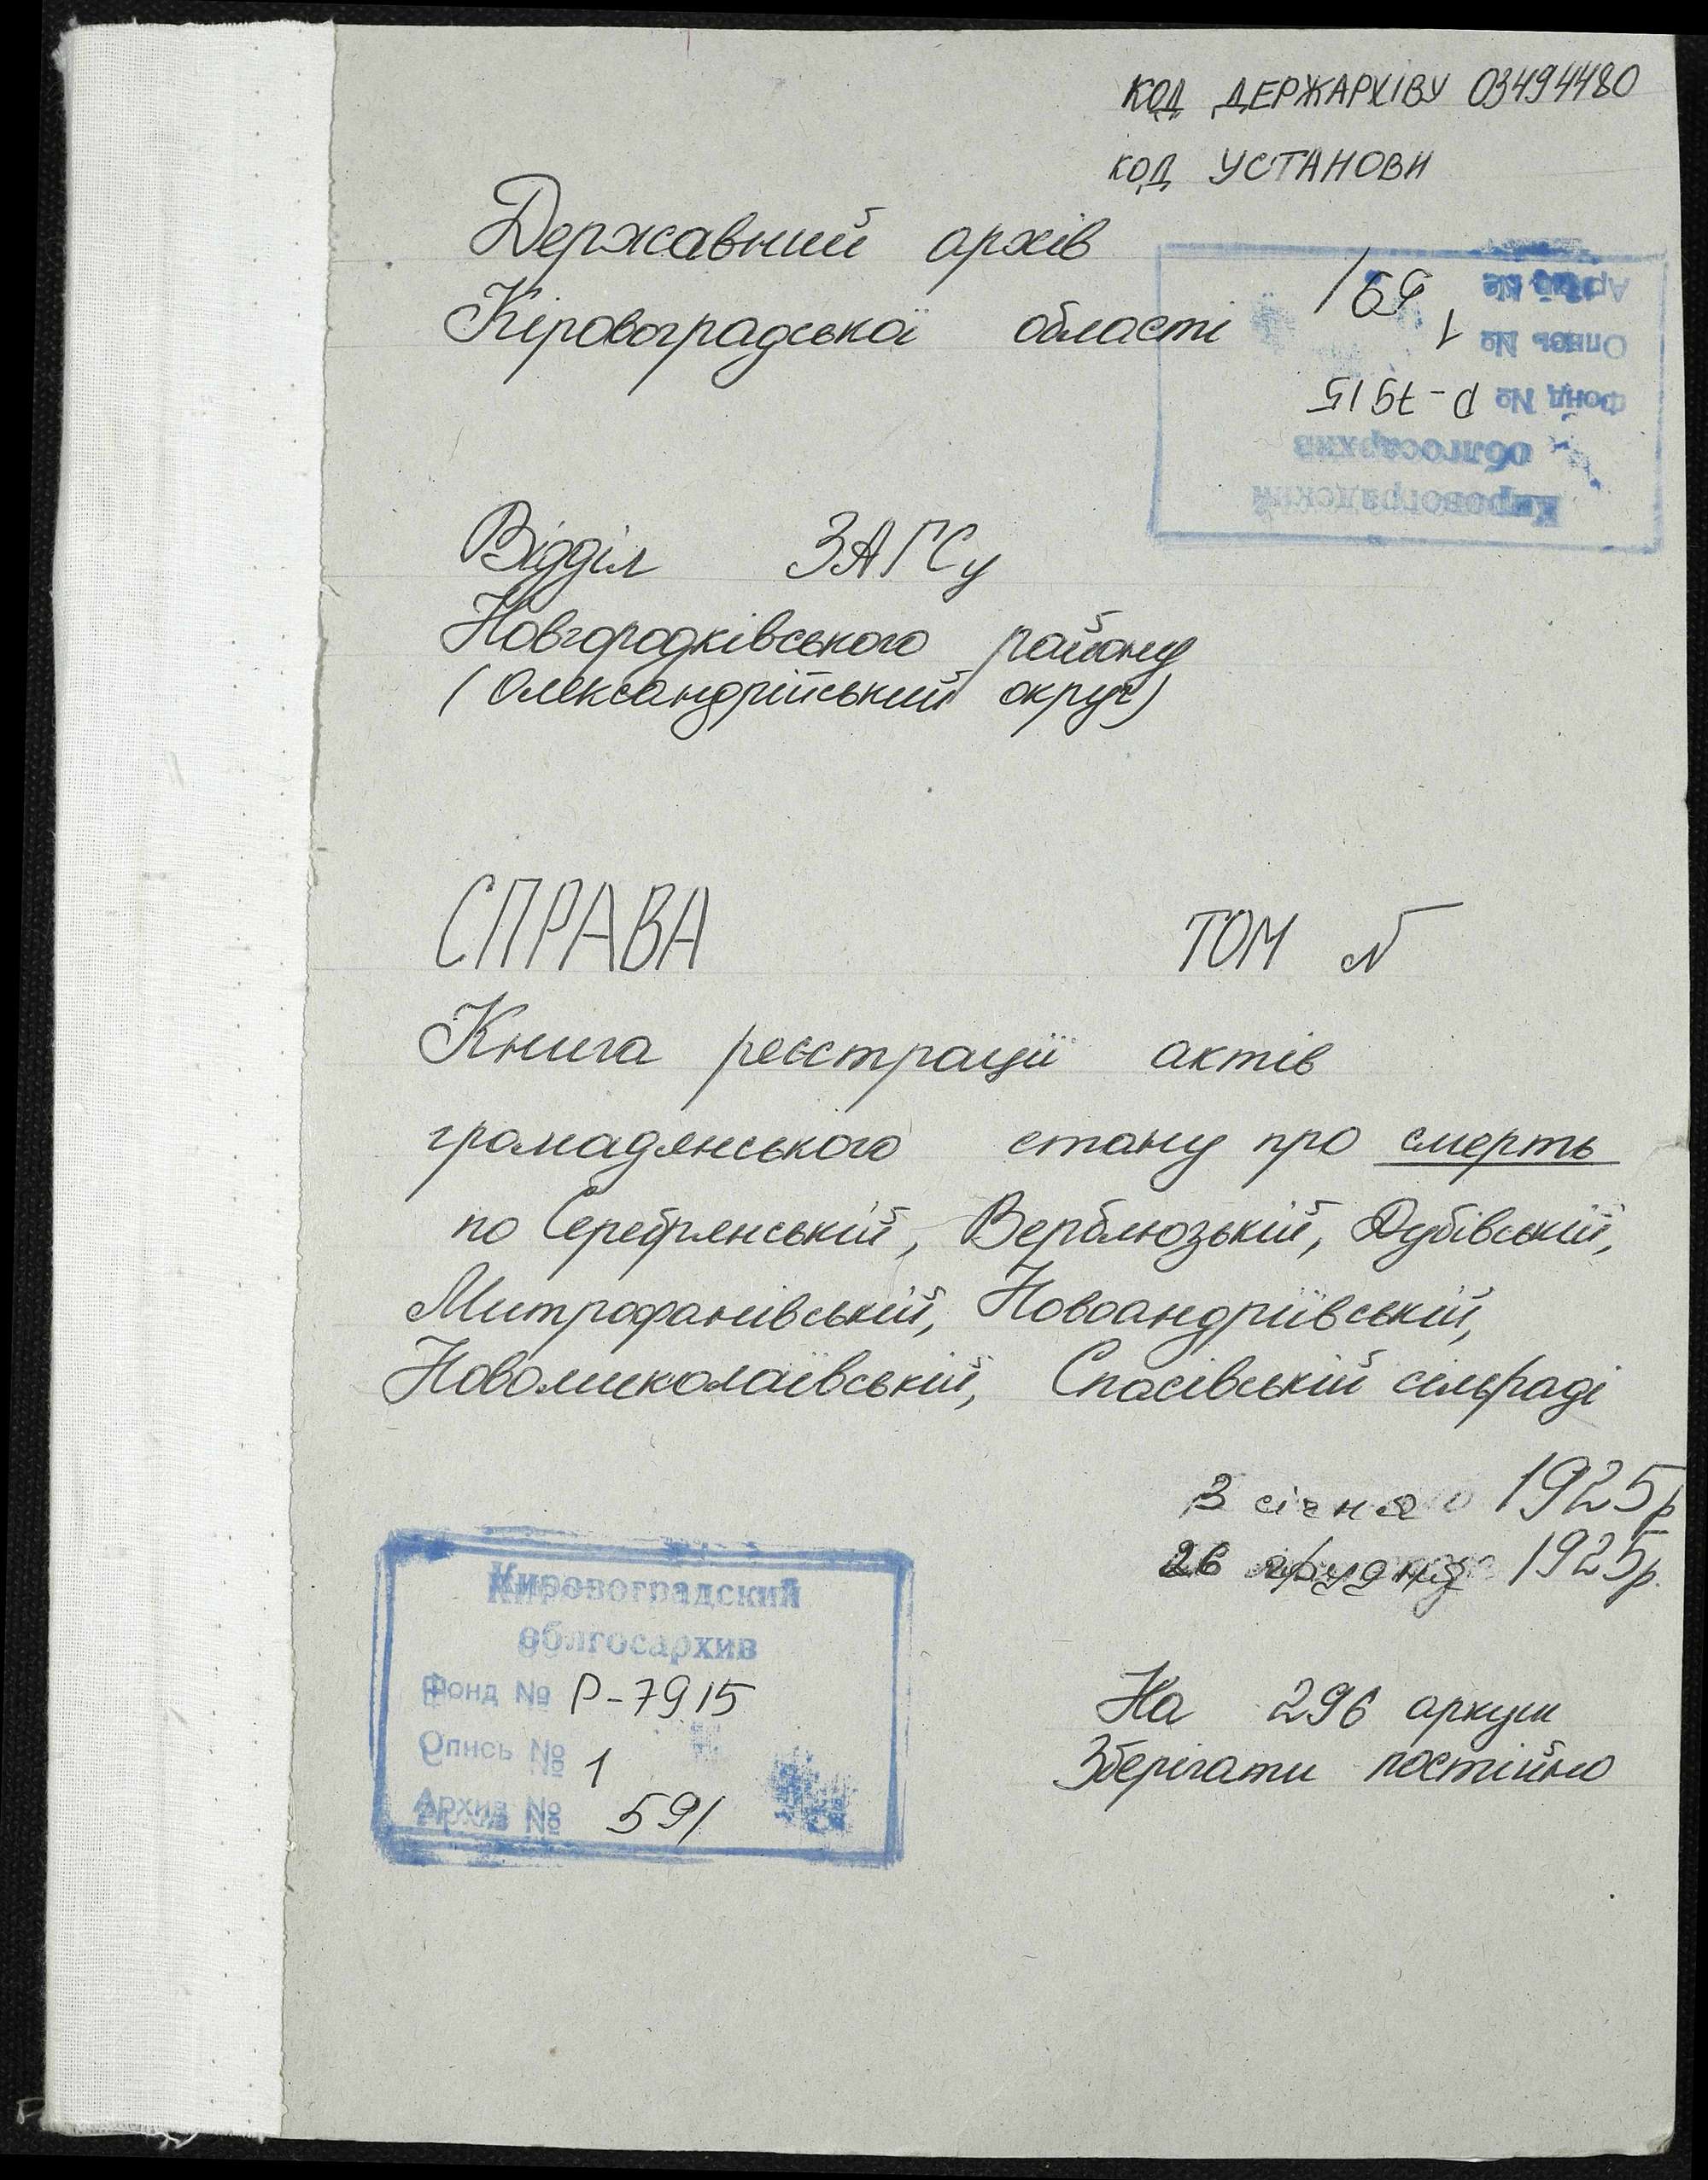 КОД ДЕРЖАРХІВУ 03494480
КОД УСТАНОВИ
Державний архів
Кіровоградської області
Кировоградский
облгосархив
Фонд № Р-7915
Опись № 1
Архив № 591
Відділ ЗАГСу
Новгородківського району
(Олександрійський округ)
СПРАВА ТОМ №
Книга реєстрації актів
громадянського стану про смерть
по Серебрянській, Верблюзькій, Дубівській,
Митрофанівській, Новоандріївській,
Новомиколаївській, Спасівській сільраді
3 січня 1925р
26 грудня 1925р.
Кировоградский
облгосархив
Фонд № Р-7915
Опись № 1
Архив № 591
На 296 аркуш
Зберігати постійно